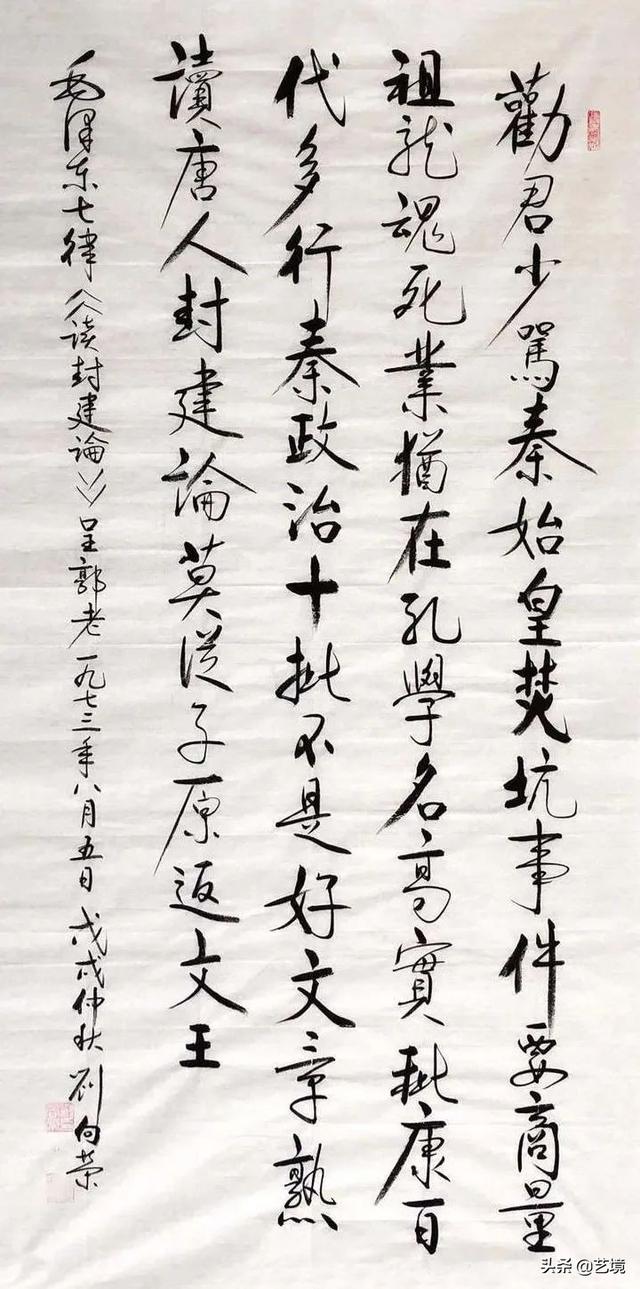 勸君少罵秦始皇焚坑事件要商量
祖龙魂死業猶在孔學名高實秕康百
代多行秦政治十批不是好文章熟
讀唐人封建論莫從子原返文王
毛泽东七律《读封建論》呈郭老一九七三年八月五日 戊戌仲秋刘向荣
头条 @艺境